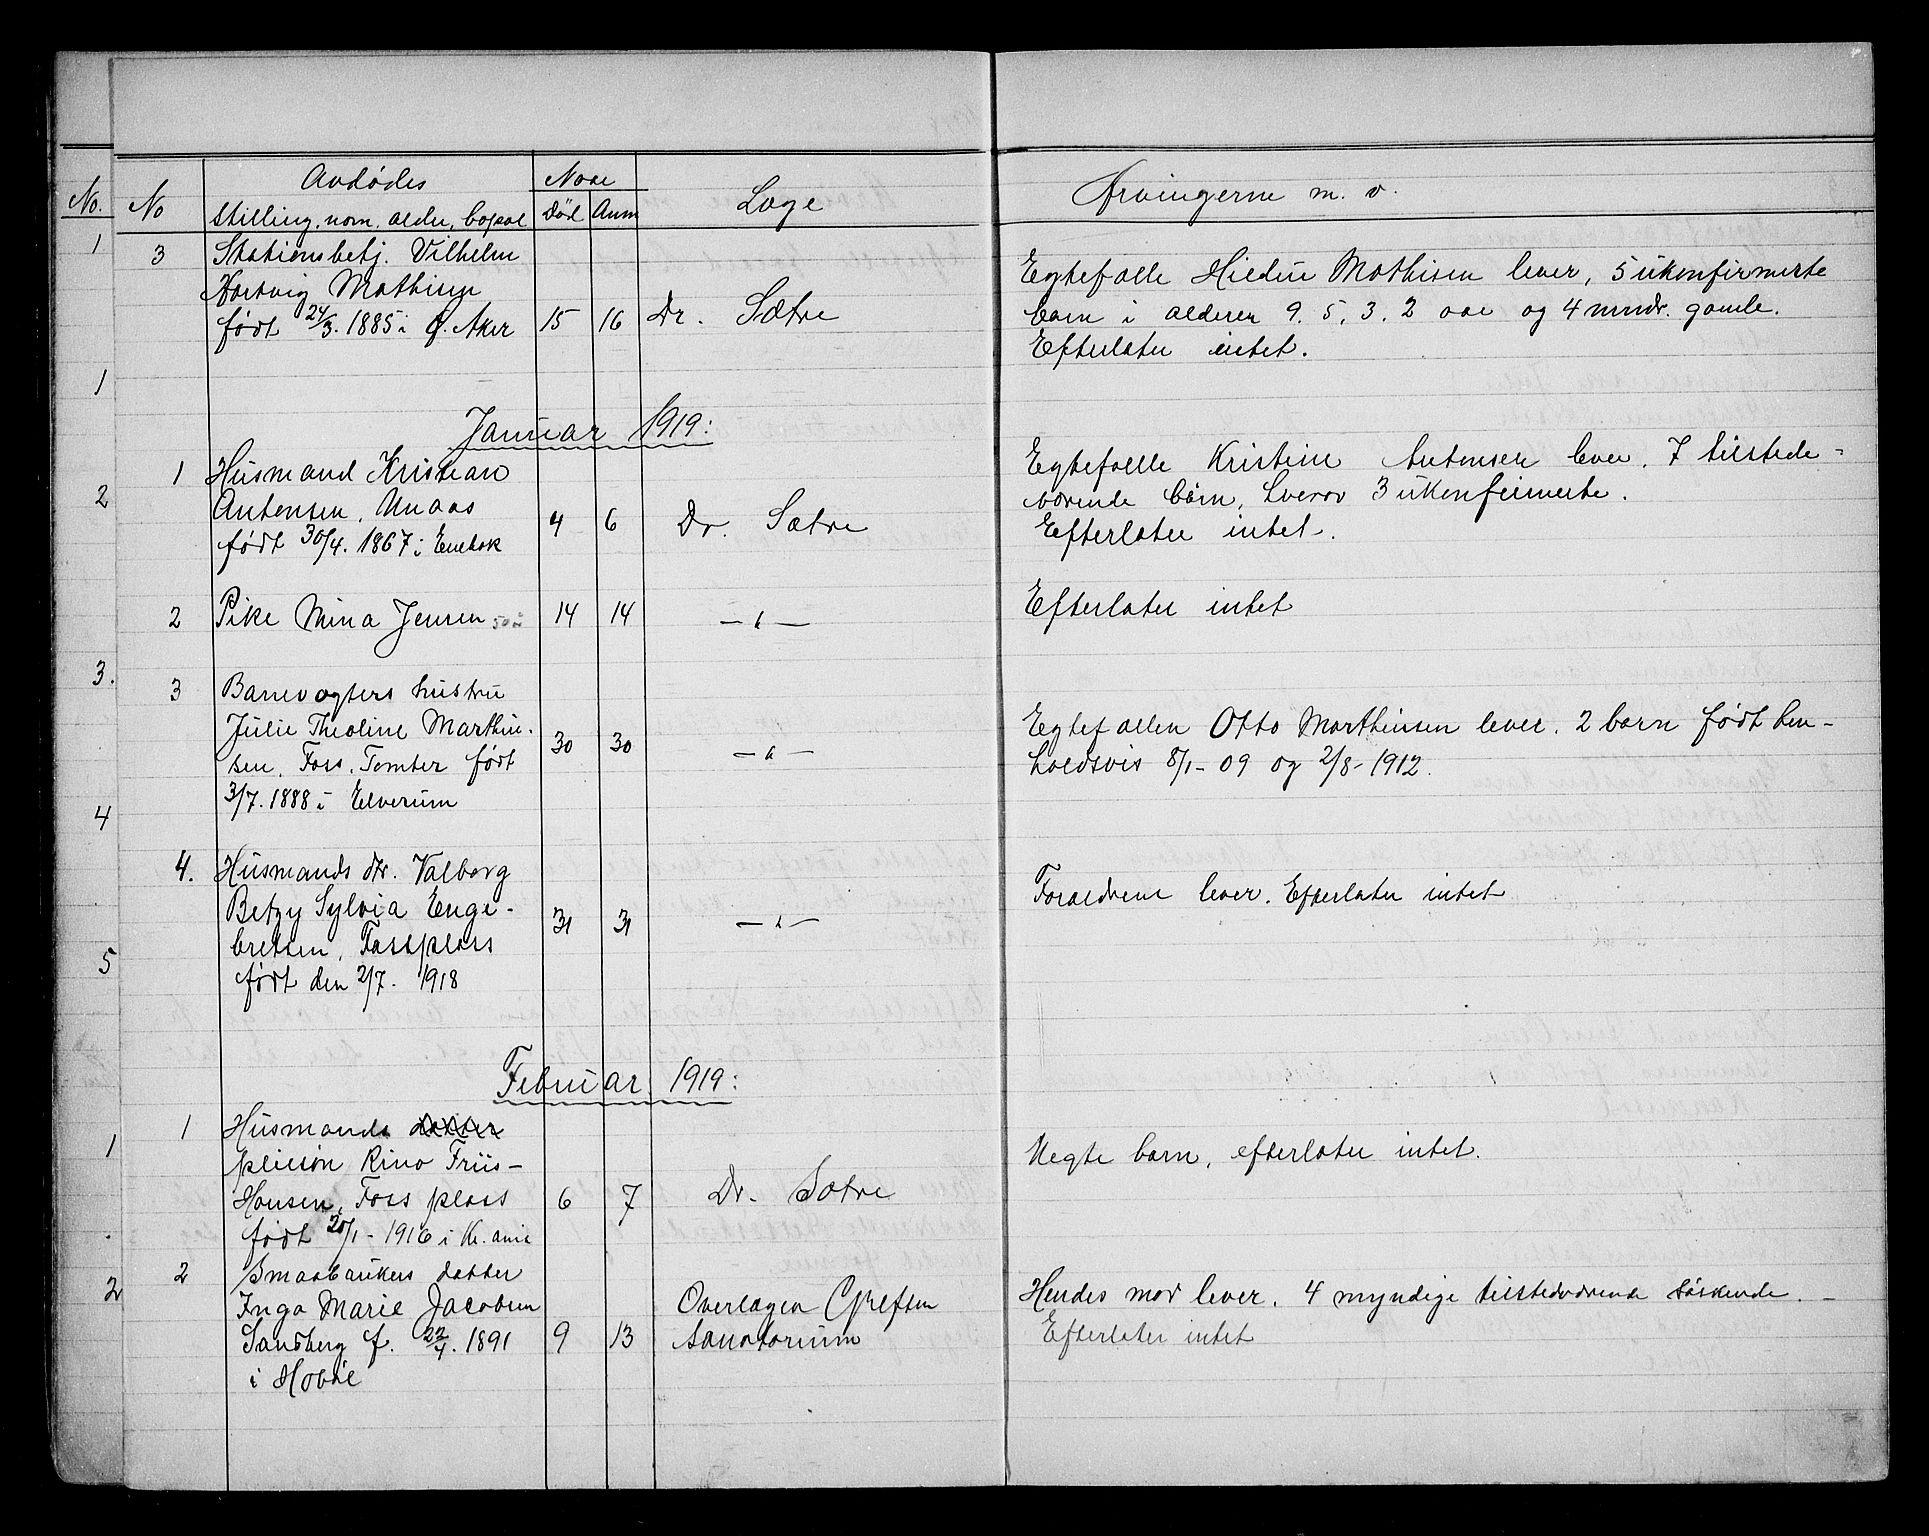 No.
1
1
2
3.
4
5
1
2
No
Avdødes
stilling, navn, alder, bopæl
Naar
Død
Anm
Læge
Arvingerne m. v.
3 Stationsbetj. Vilhelm
Hartvig Mathisen
født 24/3. 1885 i Ø. Aker 15 16 Dr. Sætre
Egtefælle Hildur Mathisen lever, 5 ukonfirmerte
barn i alderen 9. 5, 3. 2 aar og 4 mndr. gamle.
Efterlater intet.
Januar 1919:
1 Husmand Kristian
Antonsen, Unaas
født 30/4. 1867 i Enebak 4 6 Dr. Sætre
Egtefælle Kristine Antonsen lever. 7 tilstede-
værende børn, hverav 3 ukonfirmerte.
Efterlater intet.
2 Pike Mina Jensen 50 å 14 14 — " —
Efterlater intet
3 Banevogters hustru
Julie Theoline Marthin-
sen, Foss, Tomter født
3/7. 1888 i Elverum 30 30 — " —
Egtefællen Otto Marthinsen lever. 2 barn født hen-
holdsvis 8/1- 09 og 2/8- 1912.
4. Husmands dtr. Valborg
Betzy Sylvia Enge-
bretsen, Fossplass
født den 2/7. 1918 31 31 — " —
Foraeldrene lever. Efterlater intet
Februar 1919:
1 Husmands datter
pleiesøn Rino Friis-
Hansen, Foss plass
født 20/1- 1916 i Kr.ania 6 7 Dr. Sætre
Uegte barn, efterlater intet.
2 Smaabrukers datter
Inga Marie Jacobsen
Sandberg f. 22/4. 1891
i Hobøl 9 13 Overlægen Grefsen
Sanatorium
Hendes mor lever. 4 myndige tilstedværende søskende. —
Efterlater intet